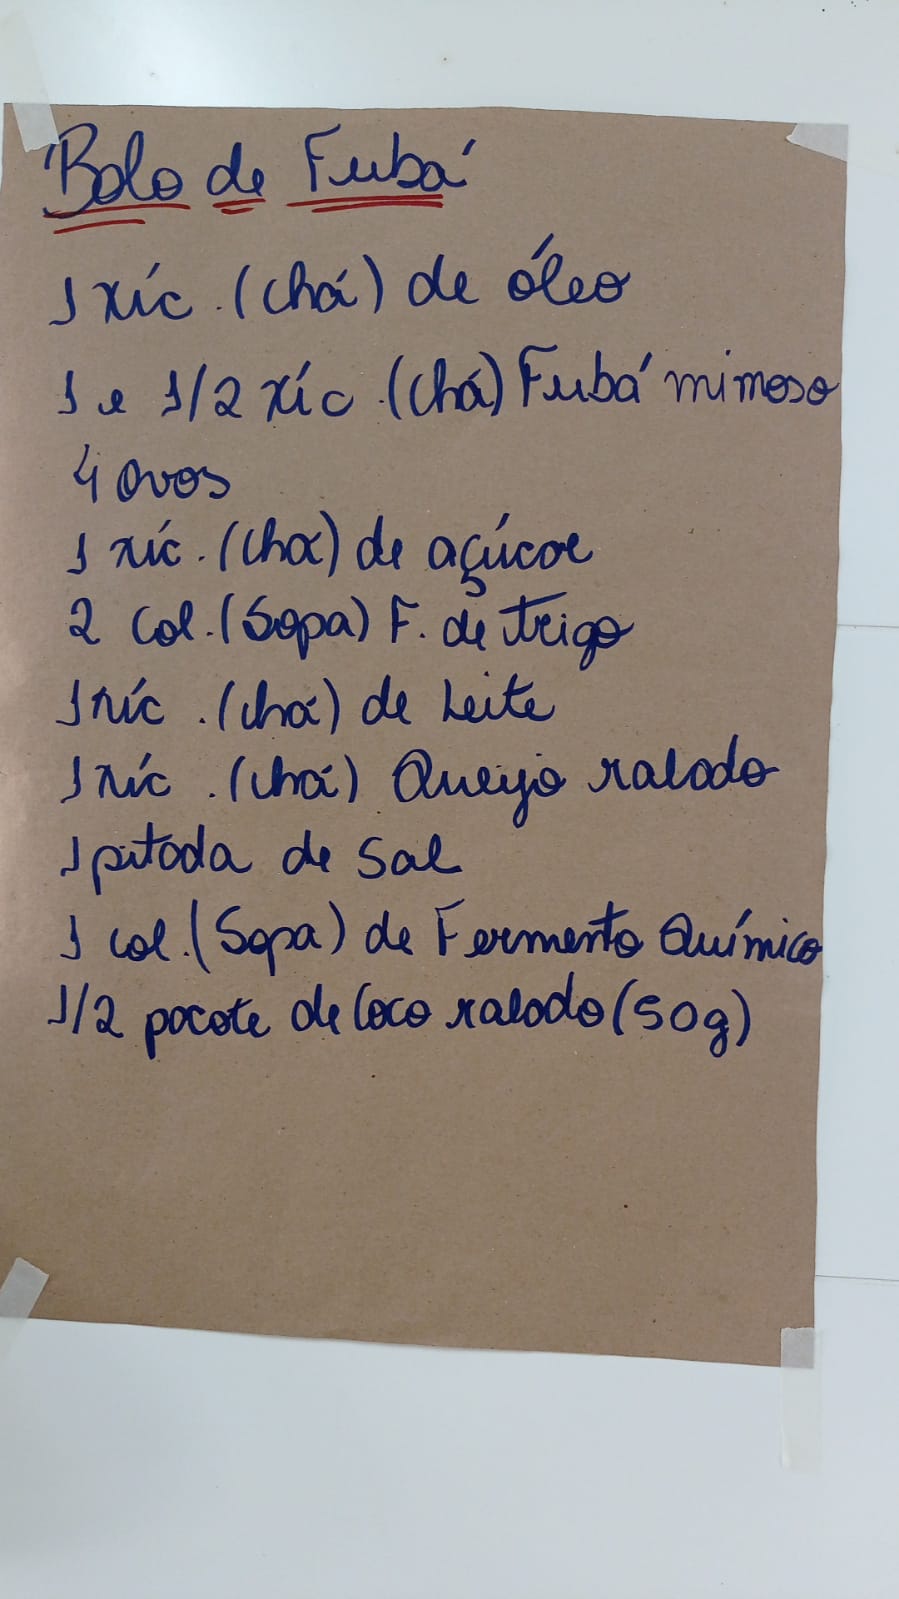 Bolo de Fubá
1 xíc. (chá) de óleo
1 e 1/2 xíc. (chá) Fubá mimoso
4 ovos
1 xíc. (chá) de açúcar
2 col. (Sopa) F. de trigo
1 xíc. (chá) de Leite
1 xíc. (chá) Queijo ralado
1 pitada de Sal
1 col. (Sopa) de Fermento Químico
1/2 pacote de Coco ralado (50g)